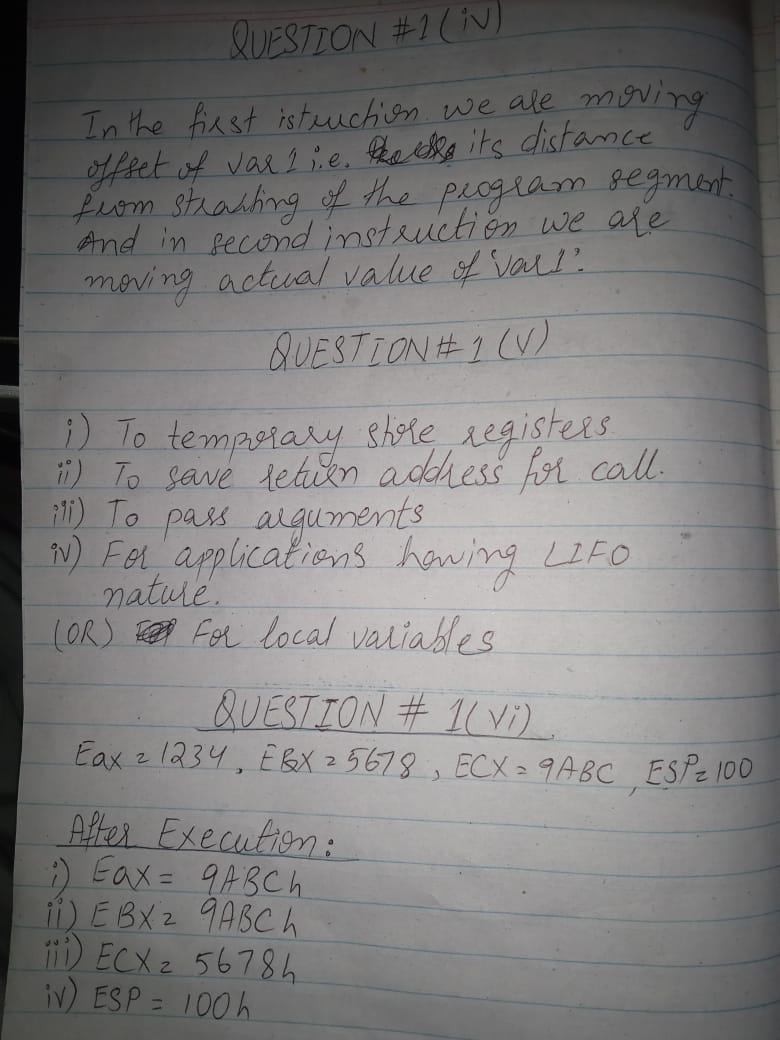 QUESTION #1 (iv)
In the first istruction we are moving
offset of var 1 i.e. its distance
from straating of the program segment.
And in second instruction we are
moving actual value of 'var1'.
QUESTION # 1 (V)
i) To temporary store registers
ii) To save return address for call.
iii) To pass arguments
iv) For applications having LIFO
nature.
(OR) For local variables
QUESTION # 1(Vi)
Eax = 1234, EBX = 5678, ECX = 9ABC, ESP = 100
After Execution:
i) Eax = 9ABCh
ii) EBX = 9ABCh
iii) ECX = 5678h
iv) ESP = 100h